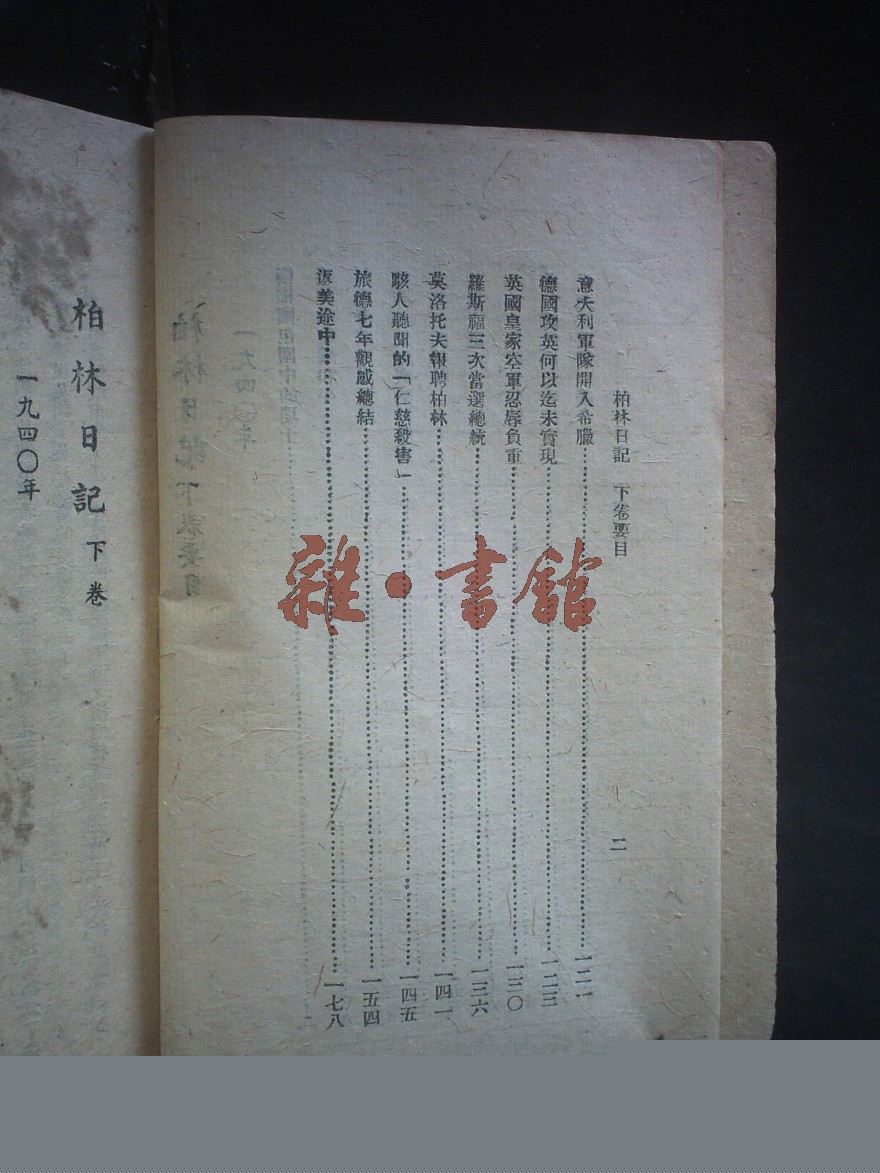 柏林日記　下卷要目
二
意大利軍隊開入希臘……一二一
德國攻英何以迄未實現……一二三
英國皇家空軍忍辱負重……一三〇
羅斯福三次當選總統……一三六
莫洛托夫報聘柏林……一四一
駭人聽聞的「仁慈殺害」……一四五
旅德七年觀感總結……一五四
返美途中……一七八
柏林日記　下卷
一九四〇年
雜·書館